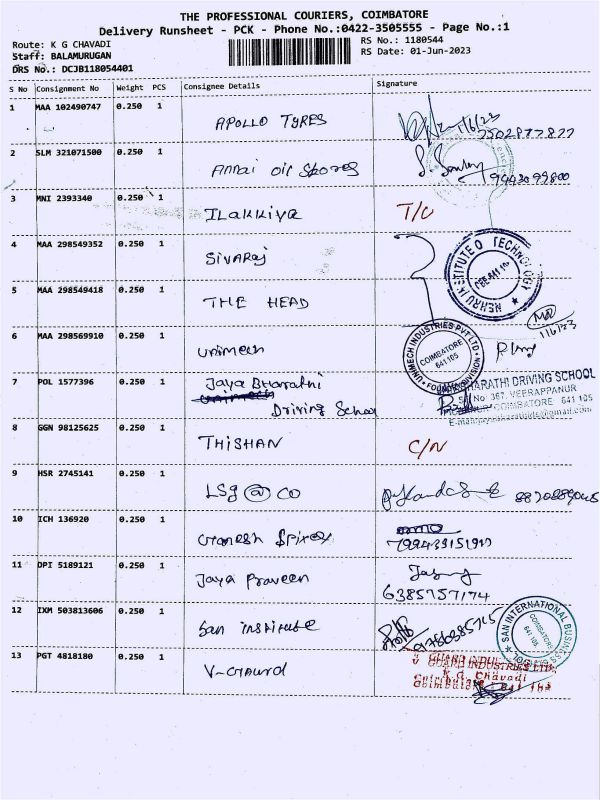 THE PROFESSIONAL COURIERS, COIMBATORE
Delivery Runsheet - PCK - Phone No.:0422-3505555 - Page No.:1
Route: K G CHAVADI
RS No.: 1180544
Staff: BALAMURUGAN
RS Date: 01-Jun-2023
DRS No.: DCJB118054401
S No Consignment No Weight PCS Consignee Details Signature
1 MAA 102490747 0.250 1 APOLLO TYRES 1/6/23
2 SLM 321071500 0.250 1 Annai oil Stores
3 MNI 2393340 0.250 1 ILAKKIYA T/O
4 MAA 298549352 0.250 1 SIVARAJ
NEHRU INSTITUTE OF TECHNOLOGY
CBE-641 105
5 MAA 298549418 0.250 1 THE HEAD
1/6/23
6 MAA 298569910 0.250 1 unimech
UNIMECH INDUSTRIES PVT LTD
FOUNDRY DIVISION
COIMBATORE
641 105
7 POL 1577396 0.250 1 Jaya Bharathi
Driving School
BHARATHI DRIVING SCHOOL
S.No 367, VEERAPPANUR
COIMBATORE 641 105
8 GGN 98125625 0.250 1 THISHAN C/N
9 HSR 2745141 0.250 1 LSG @ CO
10 ICH 136920 0.250 1 Ganesh Spirex
11 DPI 5189121 0.250 1 Jaya Praveen
6385757174
12 IXM 503813606 0.250 1 San institute
SAN INTERNATIONAL BUSINESS SCHOOL
COIMBATORE
641 105
13 PGT 4818180 0.250 1 V-Gaurd
V GUARD INDUSTRIES LTD.
K.G. Chavadi